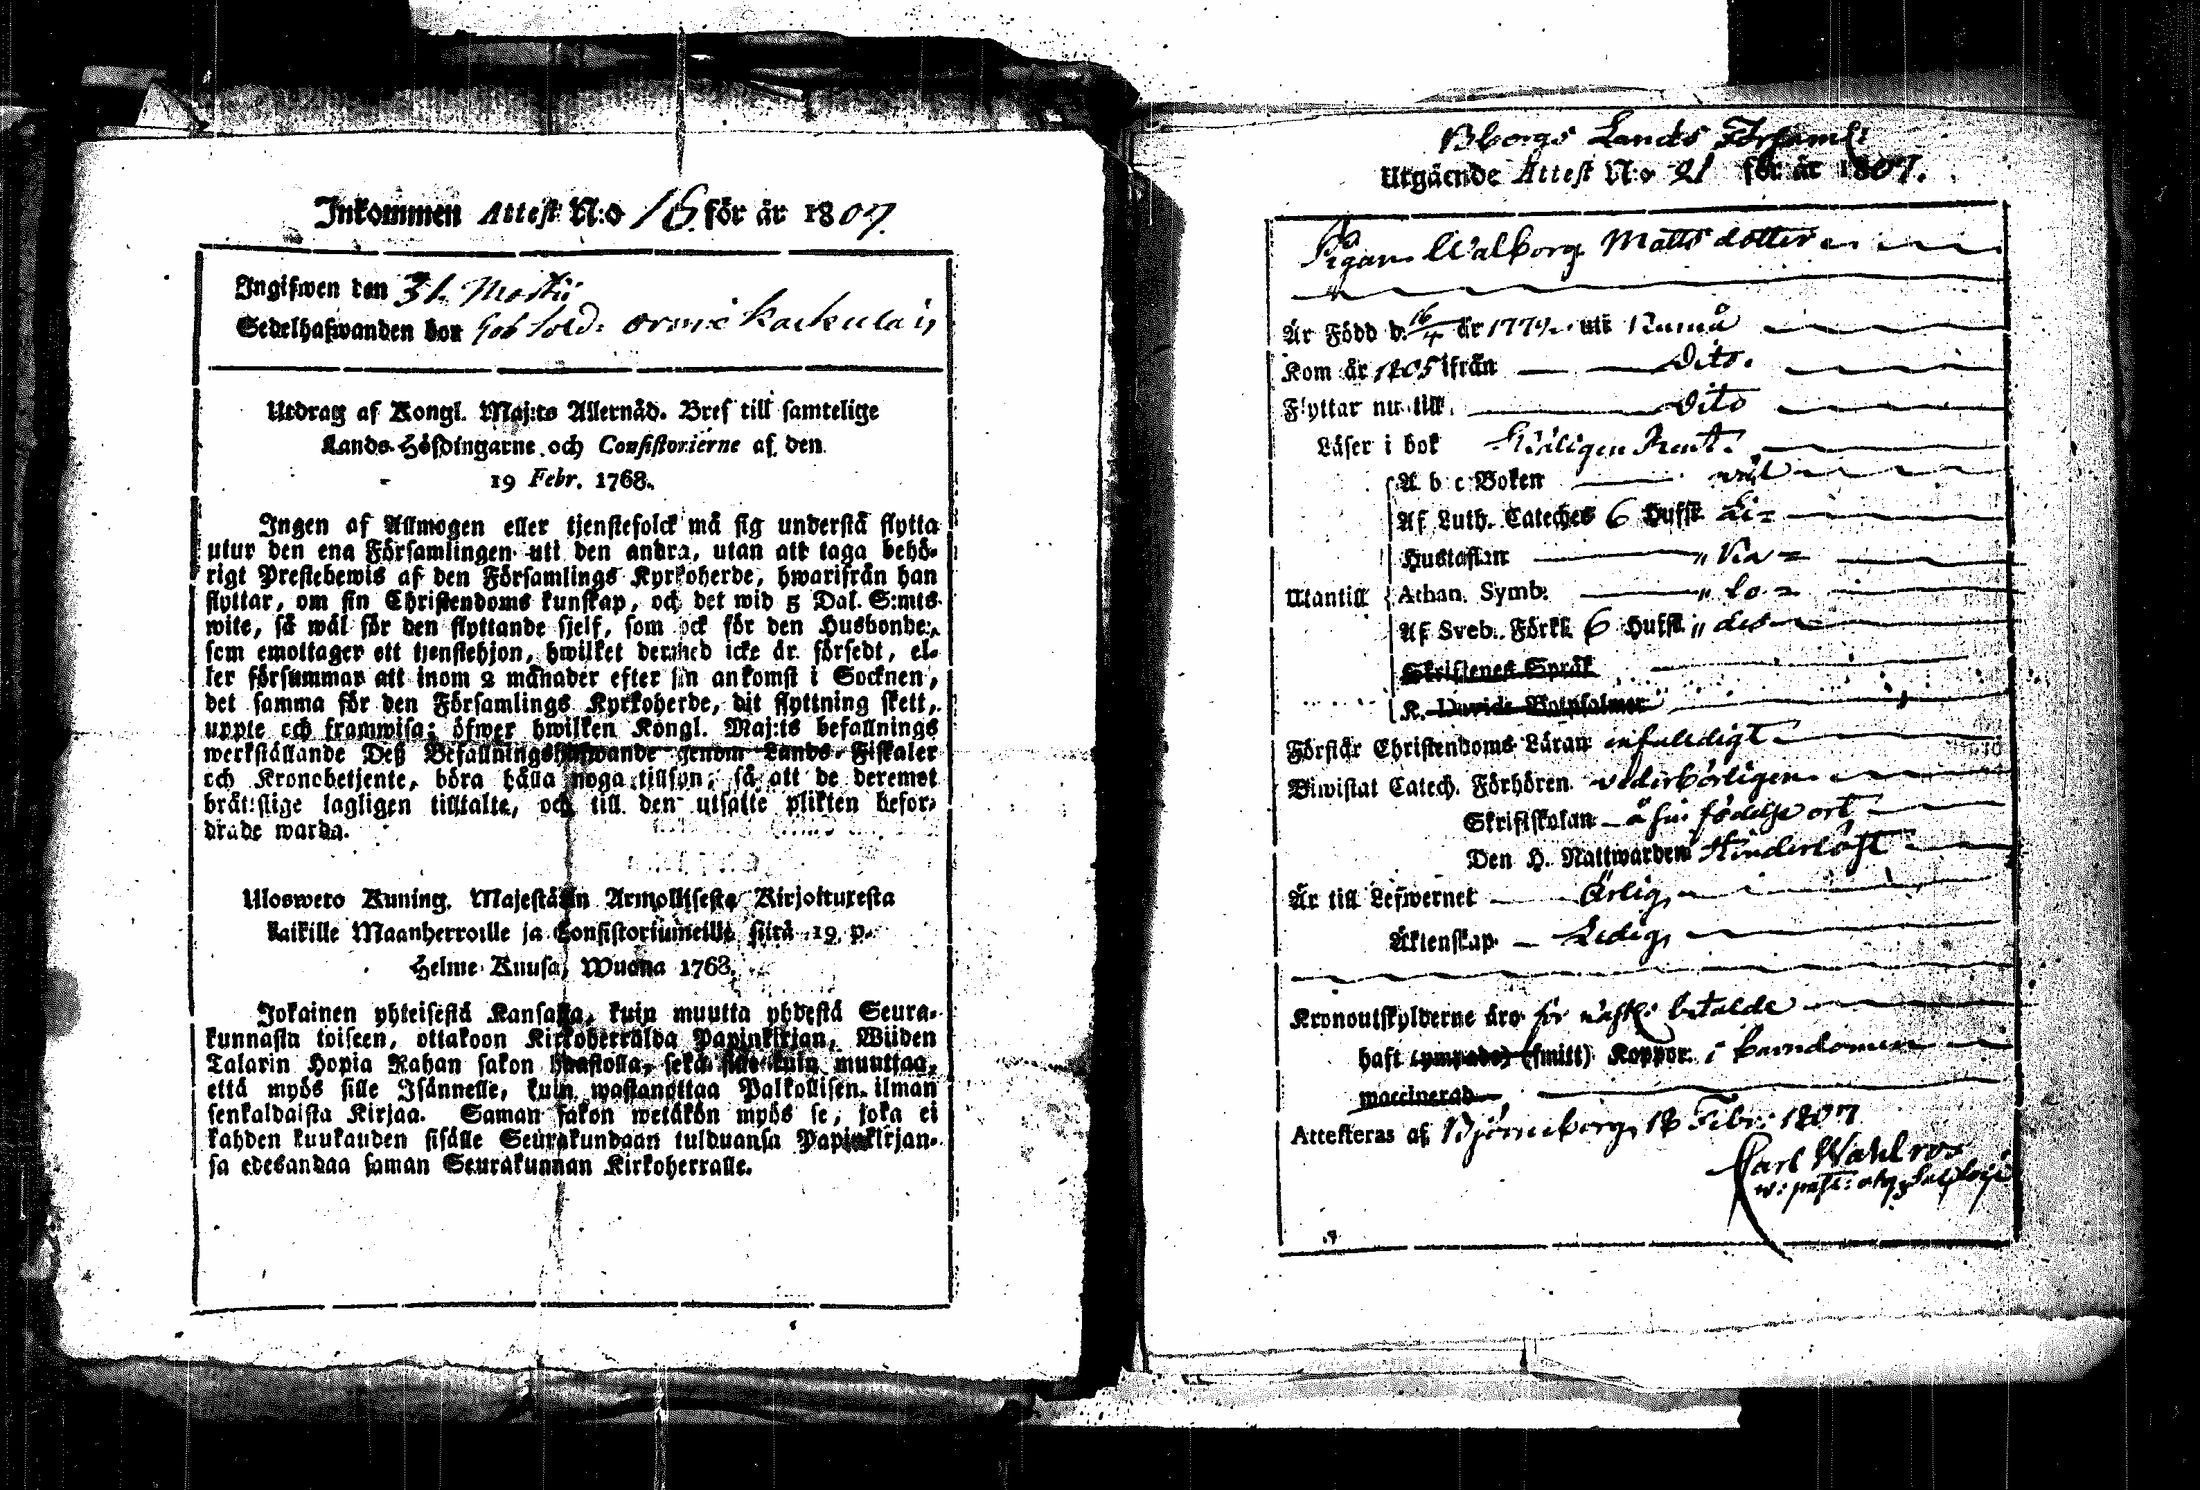 Inkommen Attest N:o 16. för år 1807.
Ingifwen den 31. Martii
Sedelhafwanden bor hos Sold:
Utdrag af Kongl. Maj:ts Allernåd. Bref till samtelige
Lands-Höfdingarne och Consistorierne af den
19 Febr. 1768.
Ingen af Allmogen eller tjenstefolck må sig understå flytta
utur den ena Församlingen uti den andra, utan att taga behö-
rigt Prestebewis af den Församlings Kyrkoherde, hwarifrån han
flyttar, om sin Christendoms kunskap, och det wid 5 Dal. S:mts
wite, så wäl för den flyttande sjelf, som ock för den Husbonde,
som emottager ett tjenstehjon, hwilket dermed icke är försedt, el-
ler försummar att inom 2 månader efter sin ankomst i Socknen,
det samma för den Församlings Kyrkoherde, dit flyttning skett,
uppte och framwisa; öfwer hwilken Kongl. Maj:ts befallnings
werkställande Deß Befallningshafwande genom Lands-Fiskaler
och Kronobetjente, böra hålla noga tillsyn, så att de deremot
brottslige lagligen tilltalte, och till den utsatte plikten befor-
drade warda.
Ulosweto Kuning. Majestätin Armollisesta Kirjoituxesta
kaikille Maanherroille ja Consistoriumeille, siitä 19 p.
Helme Kuusa, Wuona 1768.
Jokainen yhteisestä Kansasta, kuin muutta yhdestä Seura-
kunnasta toiseen, ottakoon Kirkoherralda Papinkirjan, Wiiden
Talarin Hopia Rahan sakon haastolla, sekä sille kuin muuttaa,
että myös sille Isännelle, kuin wastanottaa Palkollisen ilman
senkaldaista Kirjaa. Saman sakon wetäkön myös se, joka ei
kahden kuukauden sisälle Seurakundaan tulduansa Papinkirjan-
sa edesandaa saman Seurakunnan Kirkoherralle.
Bborgs Lands Förſaml:
Utgående Attest N:o 21 för år 1807.
Pigan Walborg Matts dotter
Är Född d. 16/4 år 1779 uti Numå
Kom år 1805 ifrån Dito.
Flyttar nu till Dito
Läser i bok
A b c Boken wäl
Af Luth. Cateches 6 Hufst.
Hustaflan
Utantill Athan. Symb.
Af Sveb. Förkl. 6 Hufst. des
Skriftenes Språk
K. Davids Botpsalmer
Förstår Christendoms Läran enfaldigt
Biwistat Catech. Förhören wederbörligen
Skriftskolan å sin födelse ort
Den H. Nattwarden Hinderlöst
Är till Lefwernet Ärlig
Äktenskap Ledig
Kronoutskylderne äro för betalde
haft (ympade) (smitt) Koppor i barndomen
waccinerad
Attesteras af Björneborg 18 Febr: 1807
Carl Wahlros